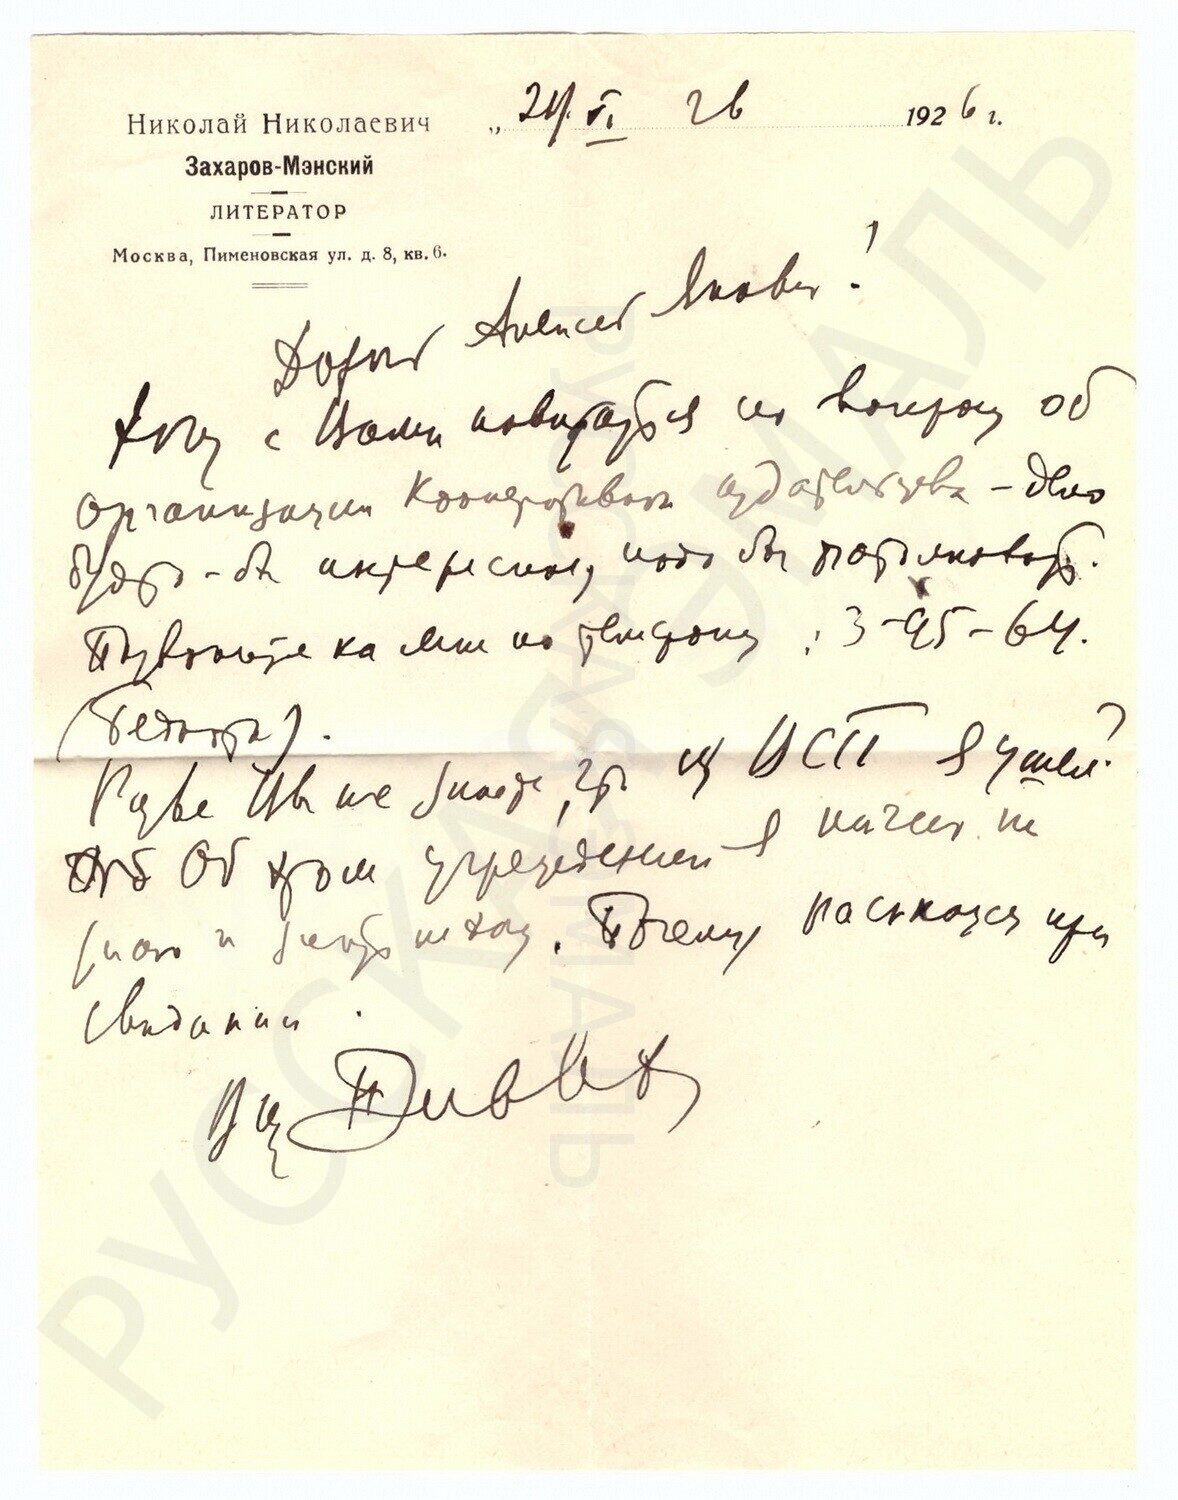 Николай Николаевич
Захаров-Мэнский
ЛИТЕРАТОР
Москва, Пименовская ул. д. 8, кв. 6.
„ 24. VI. 26 1926 г.
Дорогой Алексей Яковл !
Хочу с Вами повидаться по вопросу об
организации Кооперативн издательства – дело
будет-бы интересное, надо бы потолковать.
Позвоните ка мне по телефону : 3-95-64.
Разве Вы не знаете, что из ВСП я ушел?
Об этом учреждении я ничего не
знаю и знать не хочу. Почему расскажу при
свидании .
РУССКАЯ ЭМАЛЬ
РУССКАЯ ЭМАЛЬ